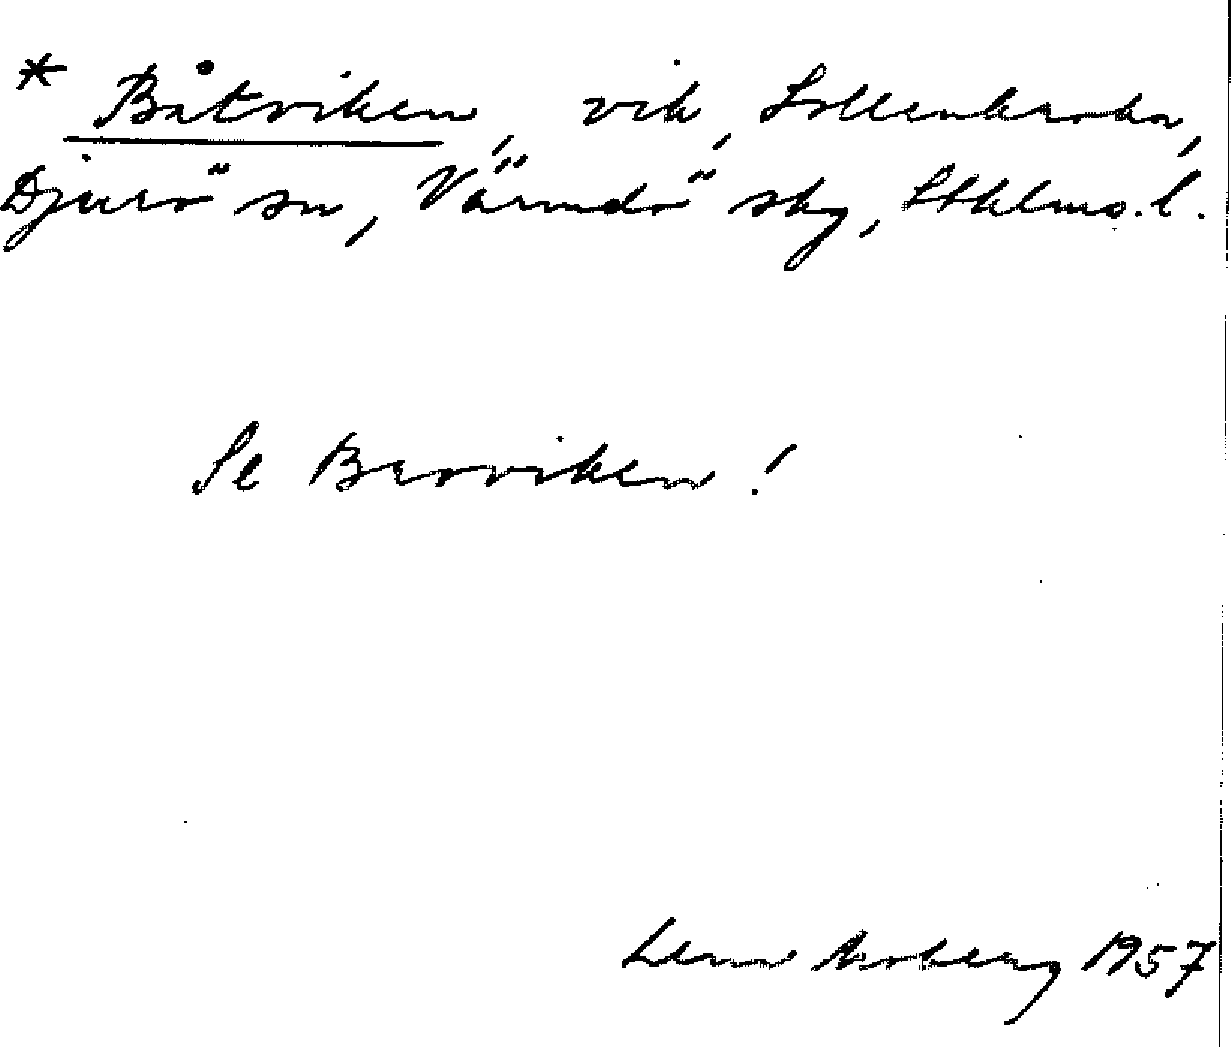 * Båtviken, vik, Sollenkroka,
Djurö sn, Värmdö skg, Sthlms. l.
Se Broviken!
1957